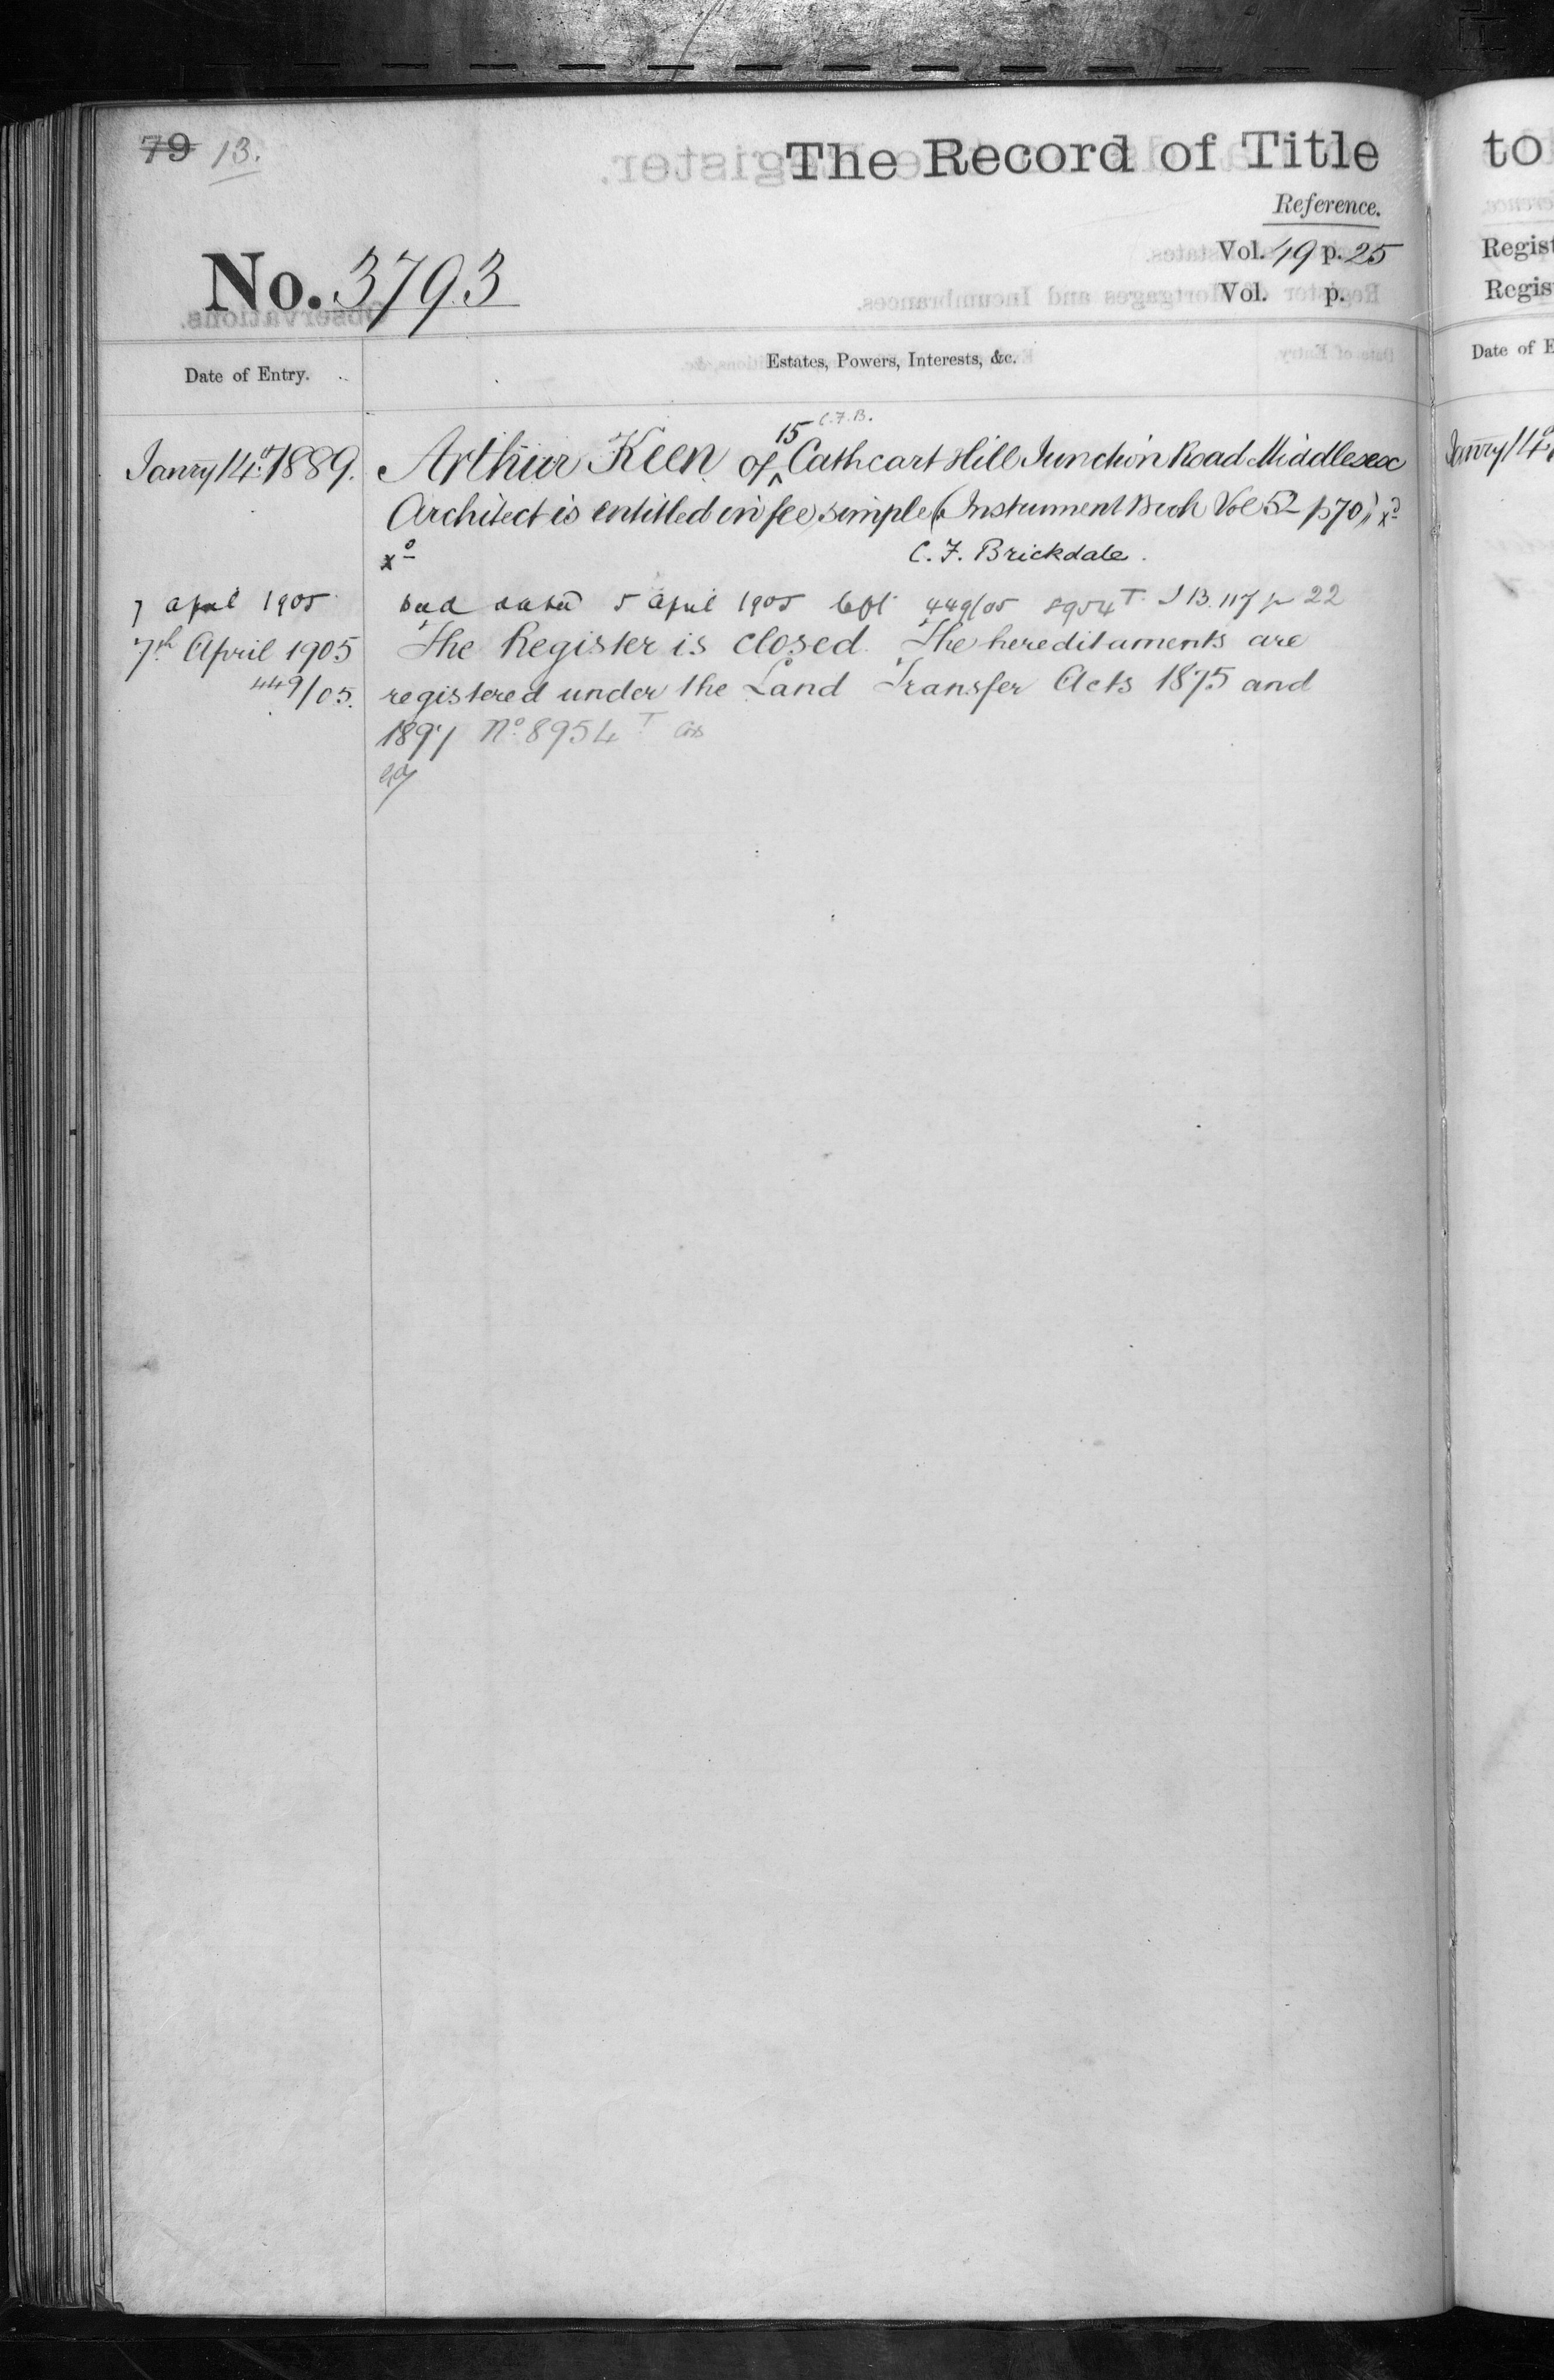 79 13.
The Record of Title
Reference.
No. 3793
Vol. 49 p. 25
Vol. p.
Date of Entry.
Estates, Powers, Interests, &c.
15 C.F.B.
Janry 14th 1889. Arthur Keen of ^ Cathcart Hill Junction Road Middlesex
Architect is entitled in fee simple (Instrument Book Vol 52 p 70) xd
xd C. F. Brickdale.
7 April 1905 dated 5 April 1905 left 449/05 8954 T. I B. 117 p 22
7th April 1905 The Register is closed. The hereditaments are
449/05. registered under the Land Transfer Acts 1875 and
1897 No 8954 T
to
Regist
Regis
Date of E
Janry 14